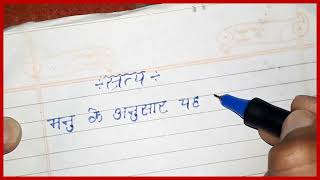 ÷ सत्य ÷
मनु के अनुसार यह